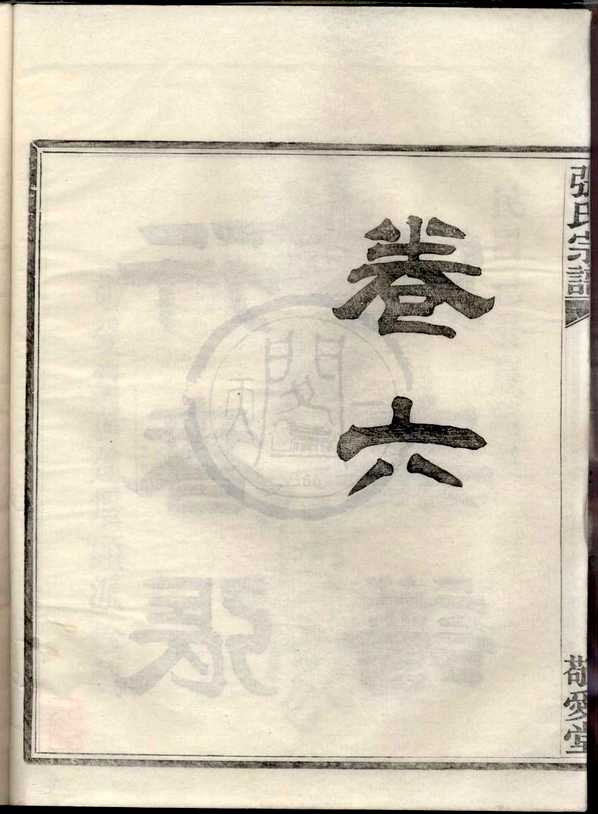 張氏宗譜
敬愛堂
卷六